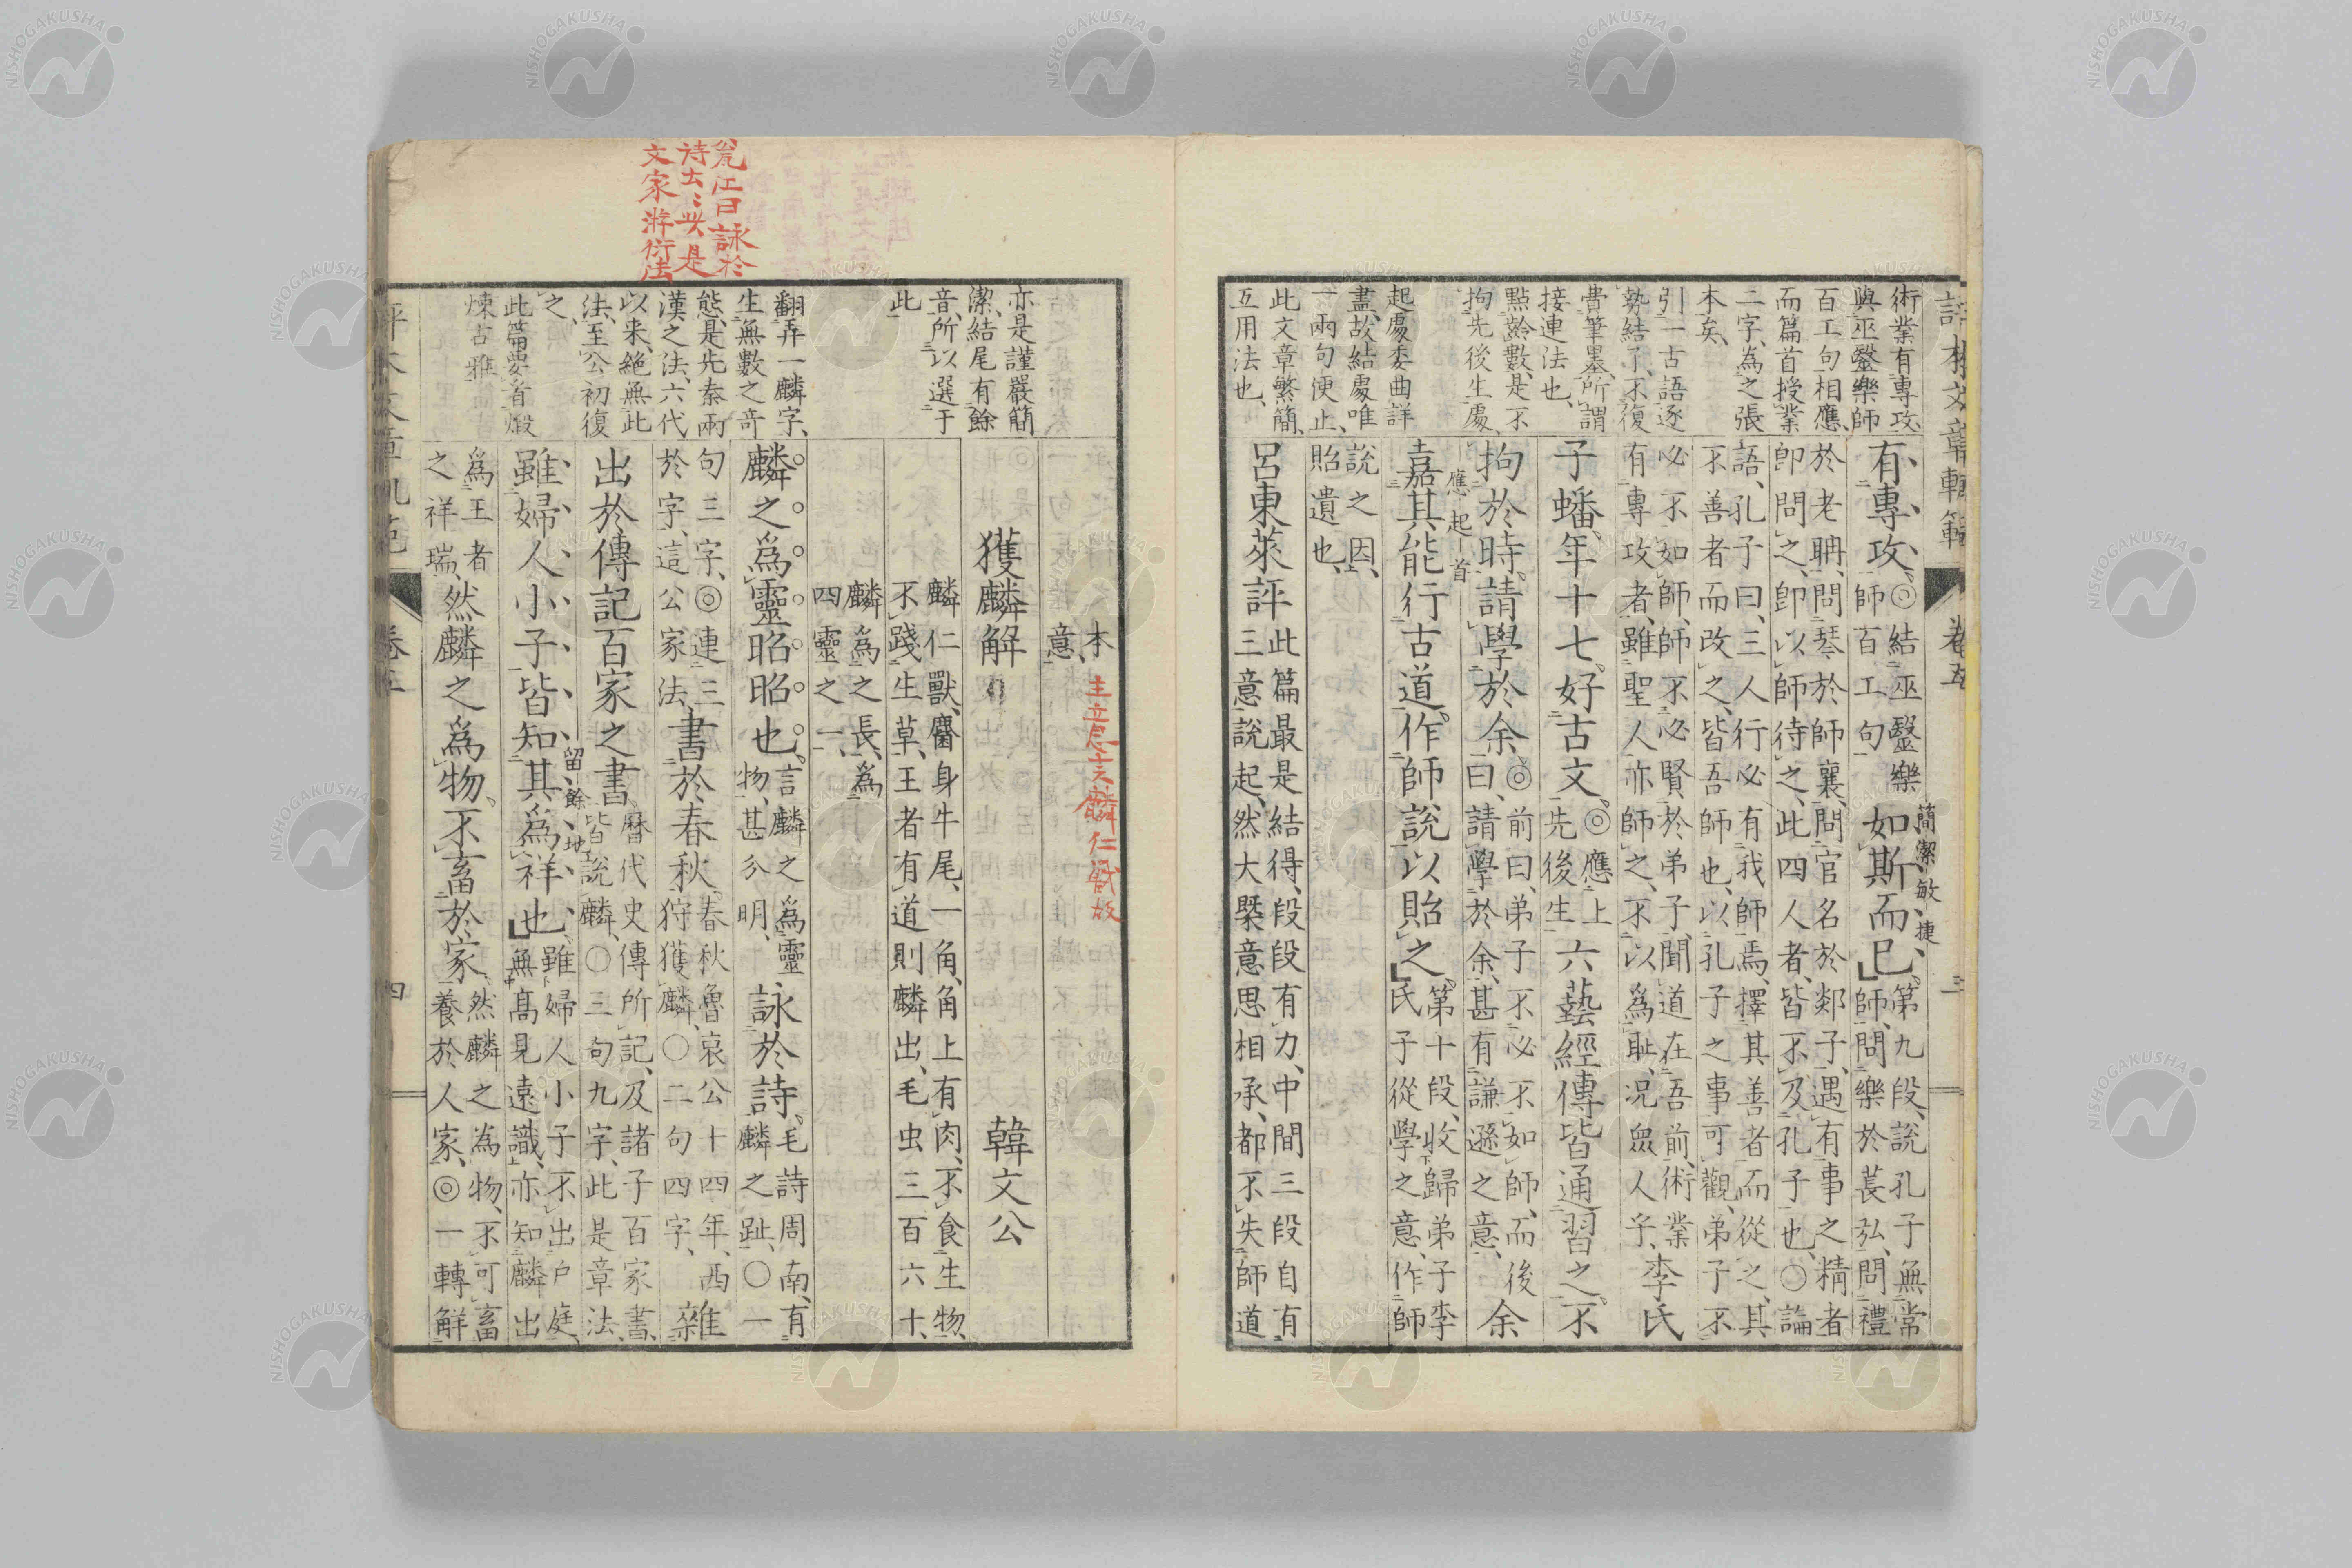 評本文章軌範
卷五
三
術業有專攻、
與巫毉樂師
百工句相應、
而篇首授業
二字、為之張
本矣、
引一古語逐
勢結了、不復
費筆墨、所謂
接連法也、
點齡數、是不
拘先後生處、
起處委曲詳
盡、故結處唯
一兩句便止、
此文章繁簡、
互用法也、
有專攻、◎結巫毉樂
師百工句
簡潔敏捷
如斯而已、第九段、說孔子無常
師、問樂於萇弘、問禮
於老聃、問琴於師襄、問官名於郯子、遇有事之精者
即問之、即以師待之、此四人者、皆不及孔子也、〇論
語、孔子曰、三人行必有我師焉、擇其善者而從之、其
不善者而改之、皆吾師也、以孔子之事可觀、弟子不
必不如師、師不必賢於弟子、聞道在吾前、術業
有專攻者、雖聖人亦師之、不以為恥、况衆人乎、李氏
子蟠、年十七。好古文。◎應上
先後生六藝經傳皆通習之。不
拘於時。請學於余。◎前曰、弟子不必不如師、而後
曰、請學於余、甚有謙遜之意、余
應起首
嘉其能行古道。作師說以貽之。第十段、收歸弟子李
氏子從學之意、作師
說之因、
貽遺也、
呂東萊評 此篇最是結得、段段有力、中間三段自有
三意說起、然大槩意思相承、都不失師道
亦是謹嚴簡
潔、結尾有餘
音、所以選于
此
翻弄一麟字、
生無數之奇
態、是先秦兩
漢之法、六代
以来、絶無此
法、至公初復
之、
此篇要省煅
煉古雅
瓮江曰詠於
詩去〻此是
文家游衍法
本
意、
麟仁獸故
獲麟解 韓文公
麟仁獸、麕身牛尾、一角、角上有肉、不食生物、
不踐生草、王者有道則麟出、毛虫三百六十、
麟為之長、為
四靈之一、
麟之為靈昭昭也。言麟之為靈
物、甚分明、詠於詩、毛詩周南、有
麟之趾、〇一
句三字、◎連三
於字、這公家法、書於春秋、春秋魯哀公十四年、西
狩獲麟、〇二句四字、雜
出於傳記百家之書。曆代史傳所記、及諸子百家書、
皆說麟、〇三句九字、此是章法、
雖婦人小子皆知其為祥也、雖婦人小子不出戶庭、
無高見遠識、亦知麟出
留餘地
為王者
之祥瑞、然麟之為物。不畜於家、然麟之為物、不可畜
養於人家、◎一轉解
四